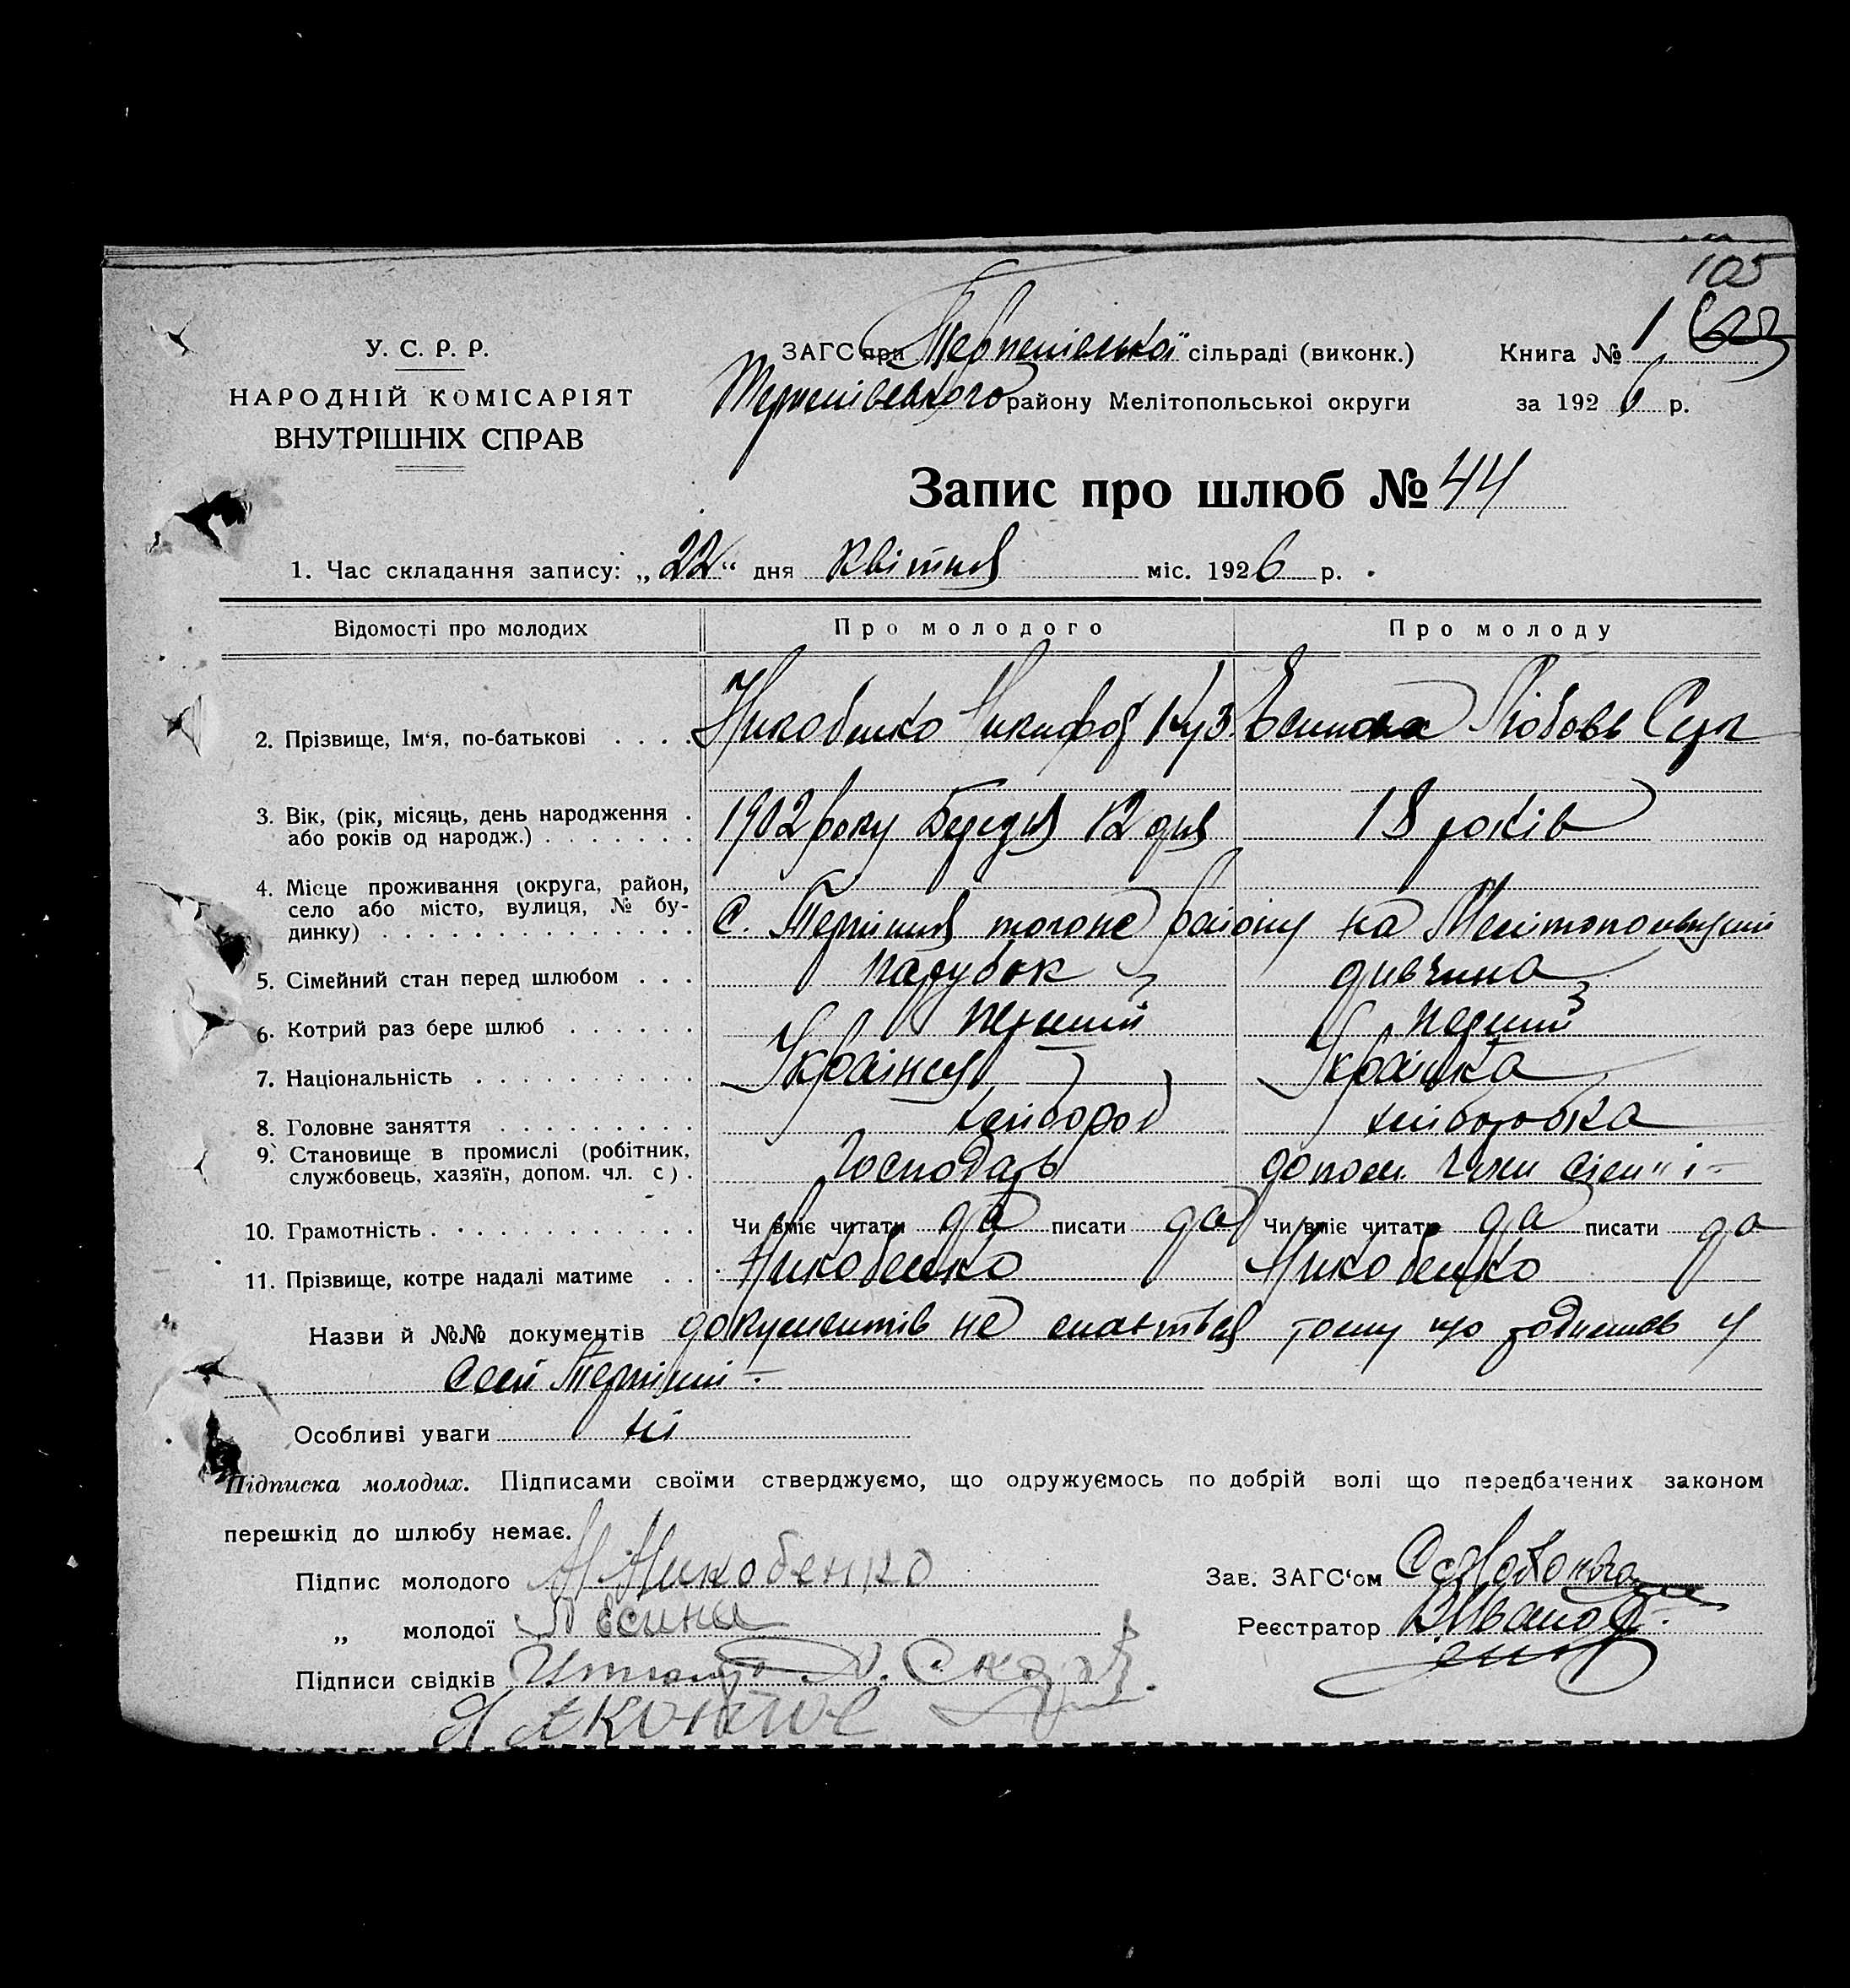 105
У. С. Р. Р.
НАРОДНІЙ КОМІСАРІЯТ
ВНУТРІШНІХ СПРАВ
ЗАГС при Терпеніевської сільраді (виконк.)
Терпенівського району Мелітопольської округи
Книга № 1
за 1926 р.
Запис про шлюб № 44
1. Час складання запису: „22“ дня квітня міс. 1926 р.
Відомості про молодих Про молодого Про молоду
2. Прізвище, Ім'я, по-батькові Никобенко Никифор Куз Есипова Любовь Серг
3. Вік, (рік, місяць, день народження або років од народж.) 1902 року Березня 12 дня 18 років
4. Місце проживання (округа, район, село або місто, вулиця, № будинку) с. Терпіння того не району на Мелітопольщині
5. Сімейний стан перед шлюбом парубок дивчина
6. Котрий раз бере шлюб перший перший
7. Національність Українец Українка
8. Головне заняття хлібороб хліборобка
9. Становище в промислі (робітник, службовець, хазяїн, допом. чл. с). Господарь допом. член сім"ї
10. Грамотність Чи вміє читати да писати да Чи вміє читати да писати да
11. Прізвище, котре надалі матиме Никобенко Никобенко
Назви й №№ документів документів не мається тому що родились у
селі Терпінні
Особливі уваги ні
Підписка молодих. Підписами своїми стверджуємо, що одружуємось по добрій волі що передбачених законом
перешкід до шлюбу немає.
Підпис молодого Н Никобенко
Зав. ЗАГС'ом
„ молодої Л Есипи
Реєстратор
Підписи свідків